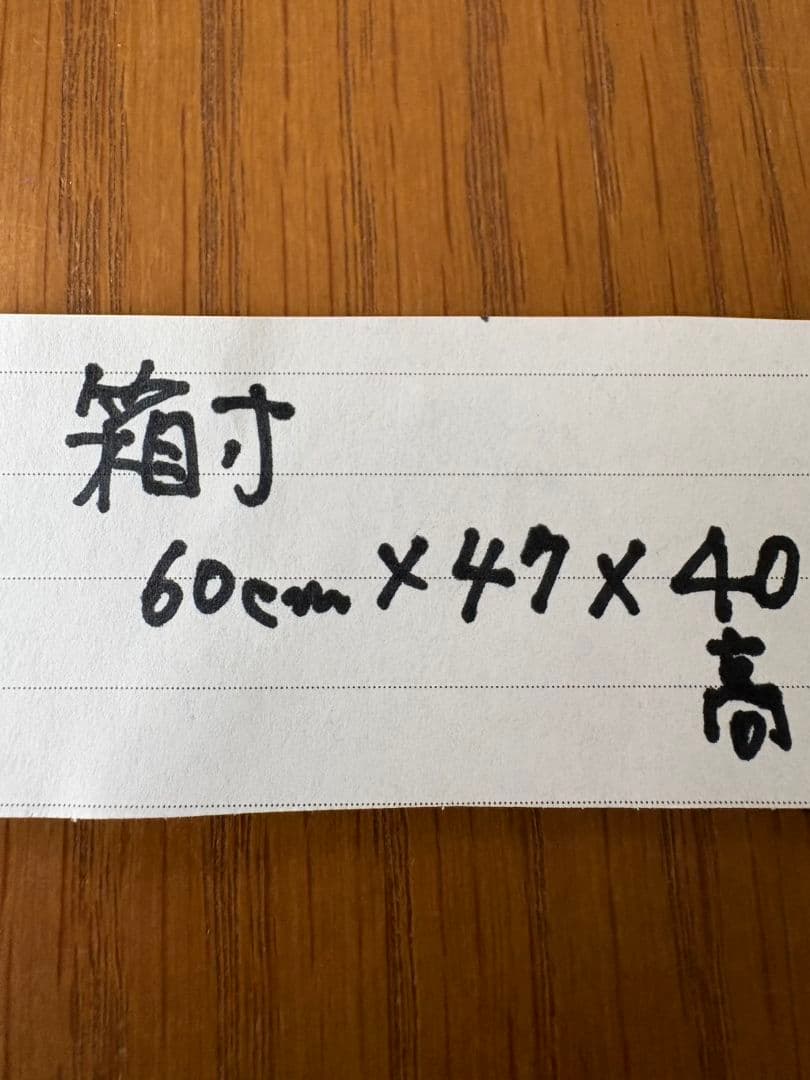 箱寸
60cm×47×40
高